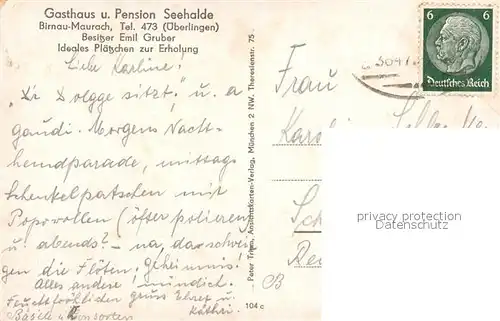 Gasthaus u. Pension Seehalde
Birnau-Maurach, Tel. 473 (Überlingen)
Besitzer Emil Gruber
Ideales Plätzchen zur Erholung
Liebe Karline!
"Dr Dolgge sitzt." u. a
gaudi. Morgens Nacht-
hemdparade, mittags
Schenkelpatschen mit
Popowollen (öfter polieren)
u. abends? – na, da schwei-
gen die Flöten. Geheimnis!
Alles andere mündlich.
Feuchtfröhlichen gruss Ehret u.
Bäsele u. Konsorten Käthri.
Peter Trima, Ansichtskarten-Verlag, München 2 NW, Theresienstr. 75
104 c
6 6
Deutsches Reich
Frau
B
protection privacy
Datenschutz